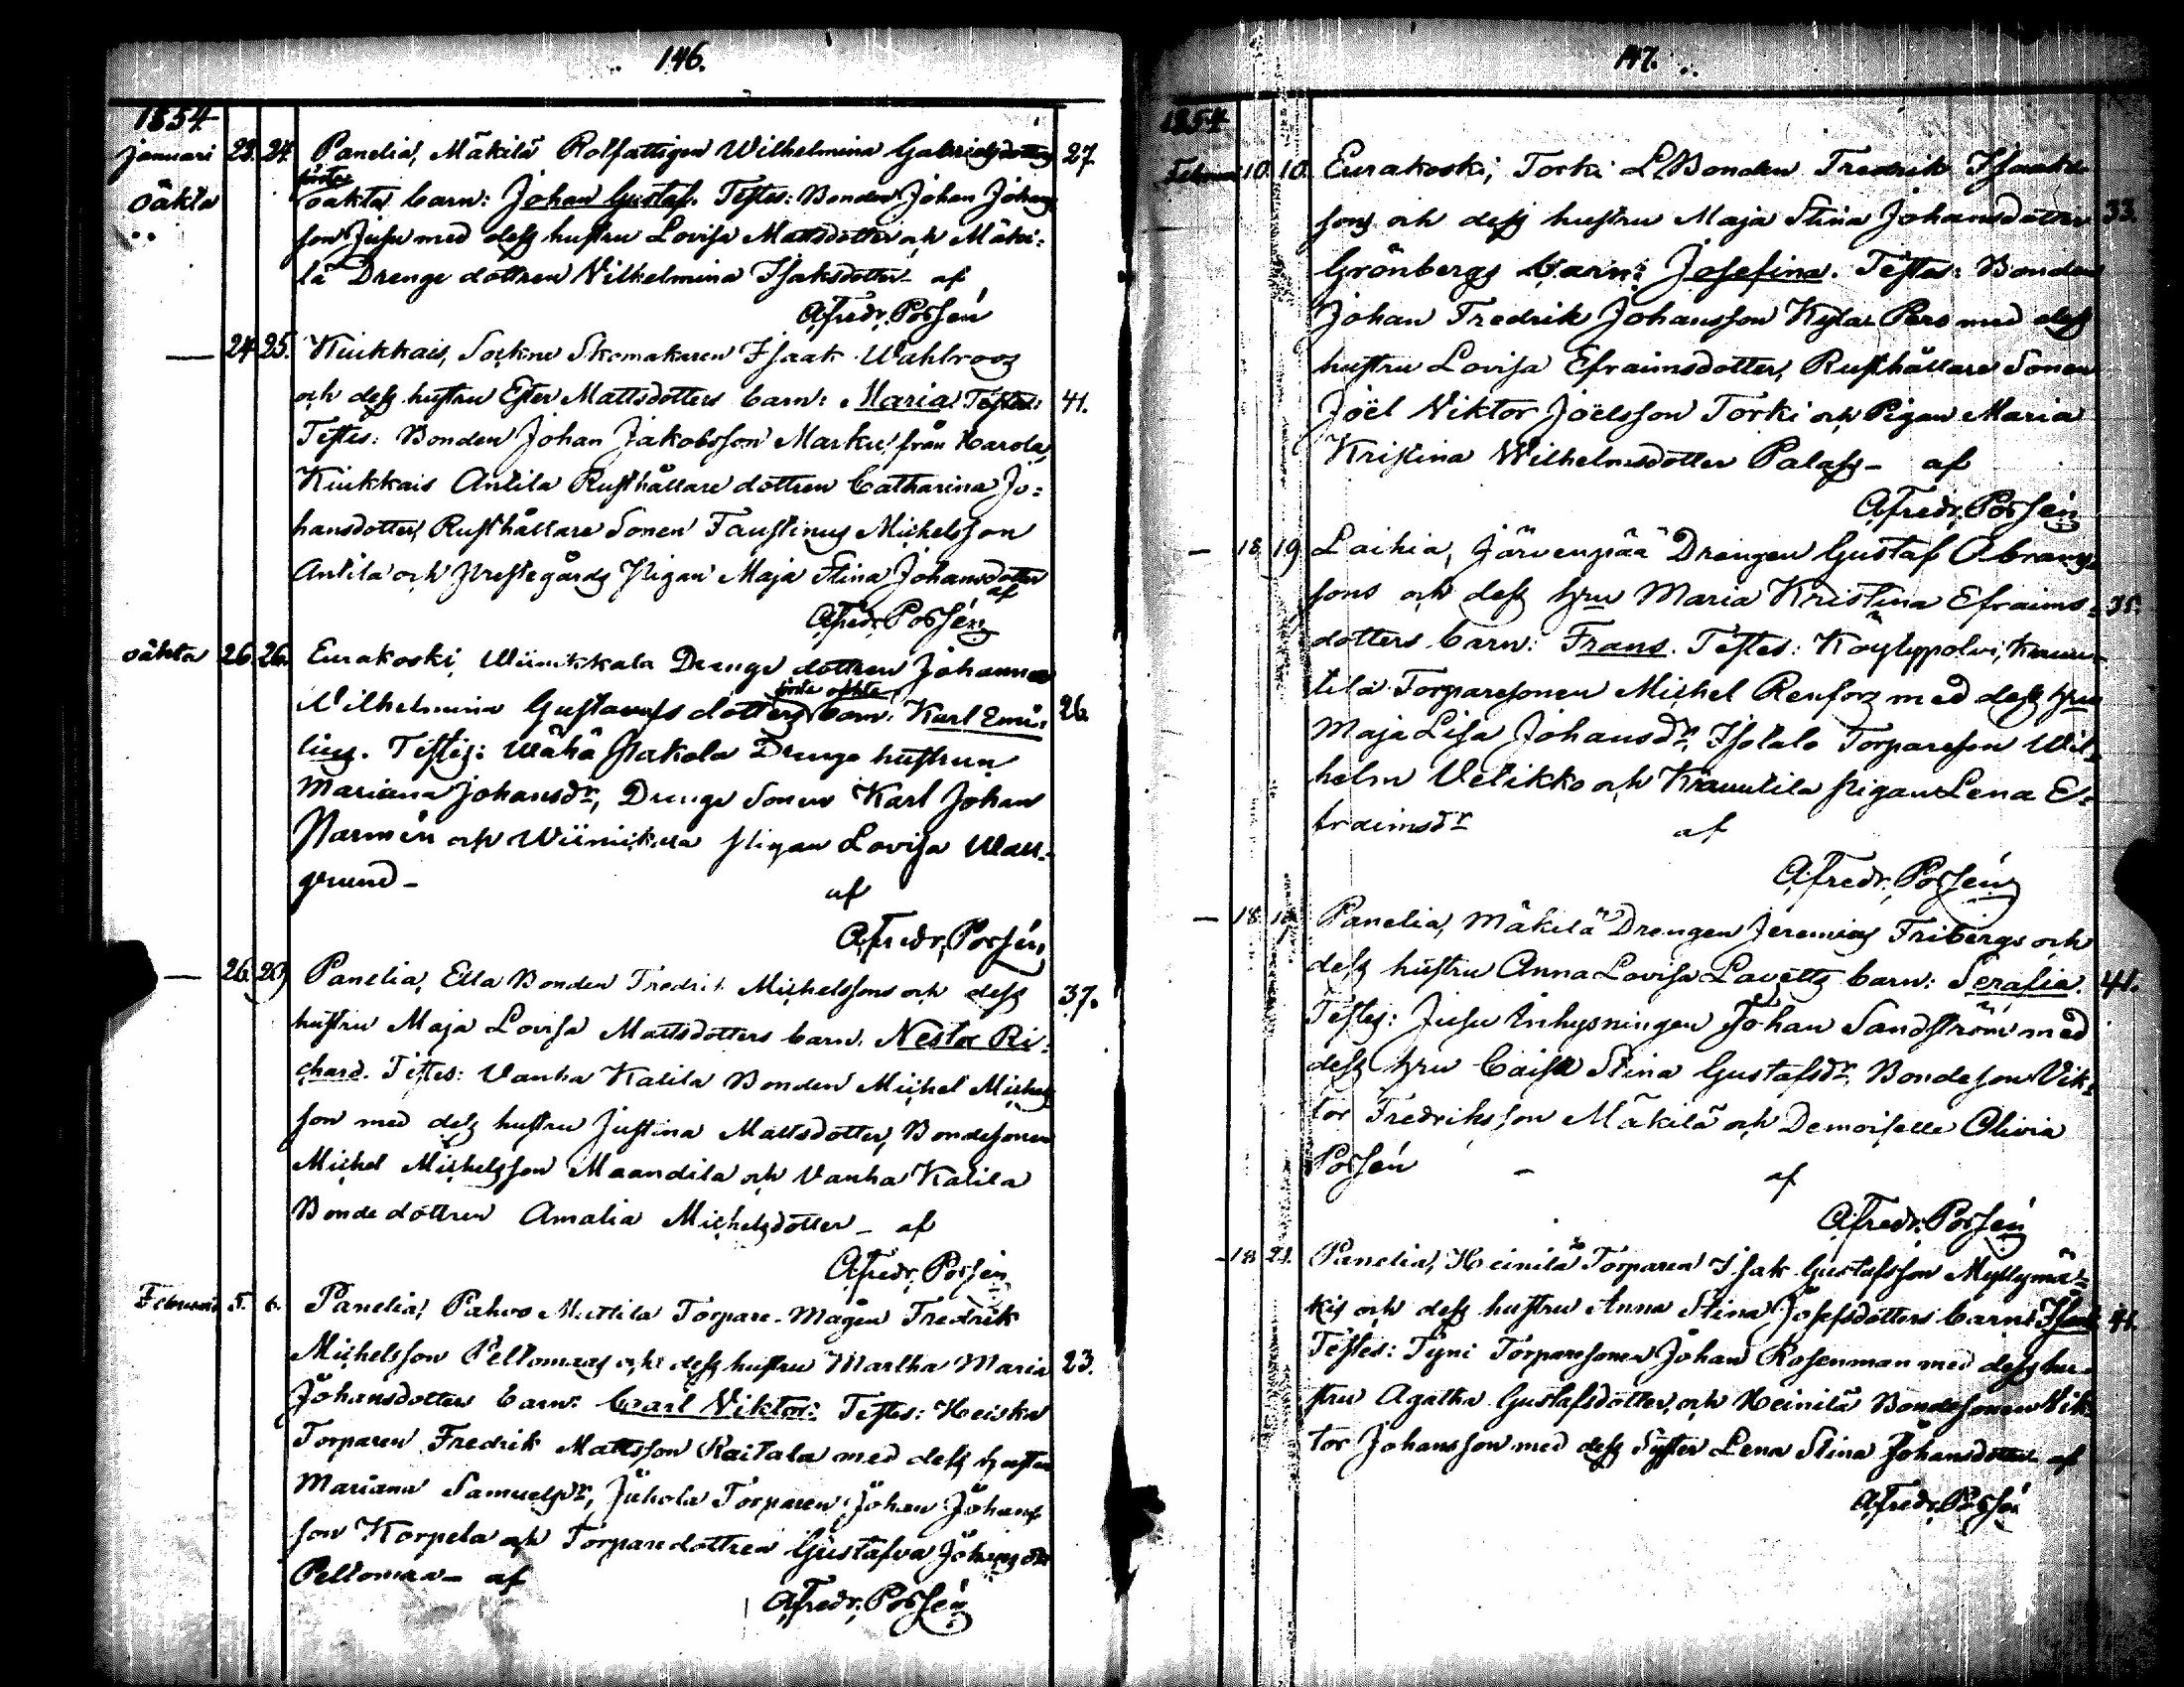 146.
1854
Januari 23. 24. Panelia, Mäkilä Rotfattigen Wilhelmina Gabrielsdotters 27.
första
oäkta oäkta barn: Johan Gustaf. Testes: Bonden Johan Johans
son Jusu med dess hustru Lovisa Mattsdotter och Mäki-
lä Drenge dottren Vilhelmina Isaksdotter - af
AFredr. Possén
— 24. 25. Kiukkais, Sockne Skomakaren Isaak Wahlroos
och dess hustru Ester Mattsdotters barn: Maria Testes: 41.
Testes: Bonden Johan Jakobsson Marku från Harola,
Kiukkais Antila Rusthållare dottren Catharina Jo-
hansdotter, Rusthållare Sonen Faustinus Michelsson
Antila och Prestegårds Pigan Maja Stina Johansdotter
af
AFredr. Possén
oäkta 26. 26. Eurakoski, Wiinikkala Drenge dottren Johanna
första oäkta
Vilhelmina Gustavss dotters barn: Karl Emi- 26.
lius. Testes: Wähä Pakola Drenge hustrun
Mariana Johansdr, Drenge Sonen Karl Johan
Narmén och Wiinikala Pigan Lovisa Wall-
grund - af
AFredr. Possén
— 26. 29. Panelia, Ella Bonden Fredrik Michelssons och dess
37.
hustru Maja Lovisa Mattsdotters barn. Nestor Ri-
chard. Testes: Vanha Katila Bonden Michel Michels
son med dess hustru Justina Mattsdotter, Bondesonen
Michel Michelsson Maandila och Vanha Katila
Bonde dottren Amalia Michelsdotter - af
AFredr. Possén
Februari 5. 6. Panelia, Pahvo Mattila Torpare-Mågen Fredrik
Michelsson Peltomaas och dess hustru Martha Maria 23.
Johansdotter barn: Carl Viktor: Testes: Heisku
Torparen Fredrik Mattsson Raitala med dess hustru
Mariana Samuelsdr, Juhola Torparen Johan Johans
son Korpela och Torparedottren Gustafva Johansdtr
Peltomaa - af
AFredr. Possén
147.
1854
Februari 10. 10. Eurakoski, Torki L. Bonden Fredrik Isaaks
sons och dess hustru Maja Stina Johansdotter 33.
Grönbergs barn: Josefina. Testes: Bonden
Johan Fredrik Johansson Kyla-Pero med dess
hustru Lovisa Efraimsdotter, Rusthållare Sonen
Joël Viktor Joëlsson Torki och Pigan Maria
Kristina Wilhelmsdotter Palass - af
AFredr. Possén
— 18. 19. Laihia, Järvenpää Drengen Gustaf Abrams-
sons och dess hru Maria Kristina Efraims- 35.
dotters barn: Frans. Testes: Köylypolvi, Krau-
tila Torparesonen Michel Renfors med dess hru
Maja Lisa Johansdr, Isotalo Torpareson Wil-
helm Vetikko och Krautila Pigan Lena E-
fraimsdr af
AFredr. Possén
— 18. 19. Panelia, Mäkilä Drengen Jeremias Fribergs och
dess hustru Anna Lovisa Lavetts barn: Serafia. 41.
Testes: Jusu Inhysningen Johan Sandström med
dess hru Caisa Stina Gustafsdr, Bondeson Vik-
tor Fredriksson Mäkilä och Demoiselle Olivia
Possén - af
AFredr. Possén
- 18. 21. Panelia, Heinilä Torparen Isak Gustafsson Myllymä-
kis och dess hustru Anna Stina Josefsdotters barn: Isaak 41.
Testes: Tyni Torparesonen Johan Rosenman med dess hu-
stru Agatha Gustafsdotter, och Heinilä Bondesonen Vik-
tor Johansson med dess Syster Lena Stina Johansdotter af
AFredr. Possén